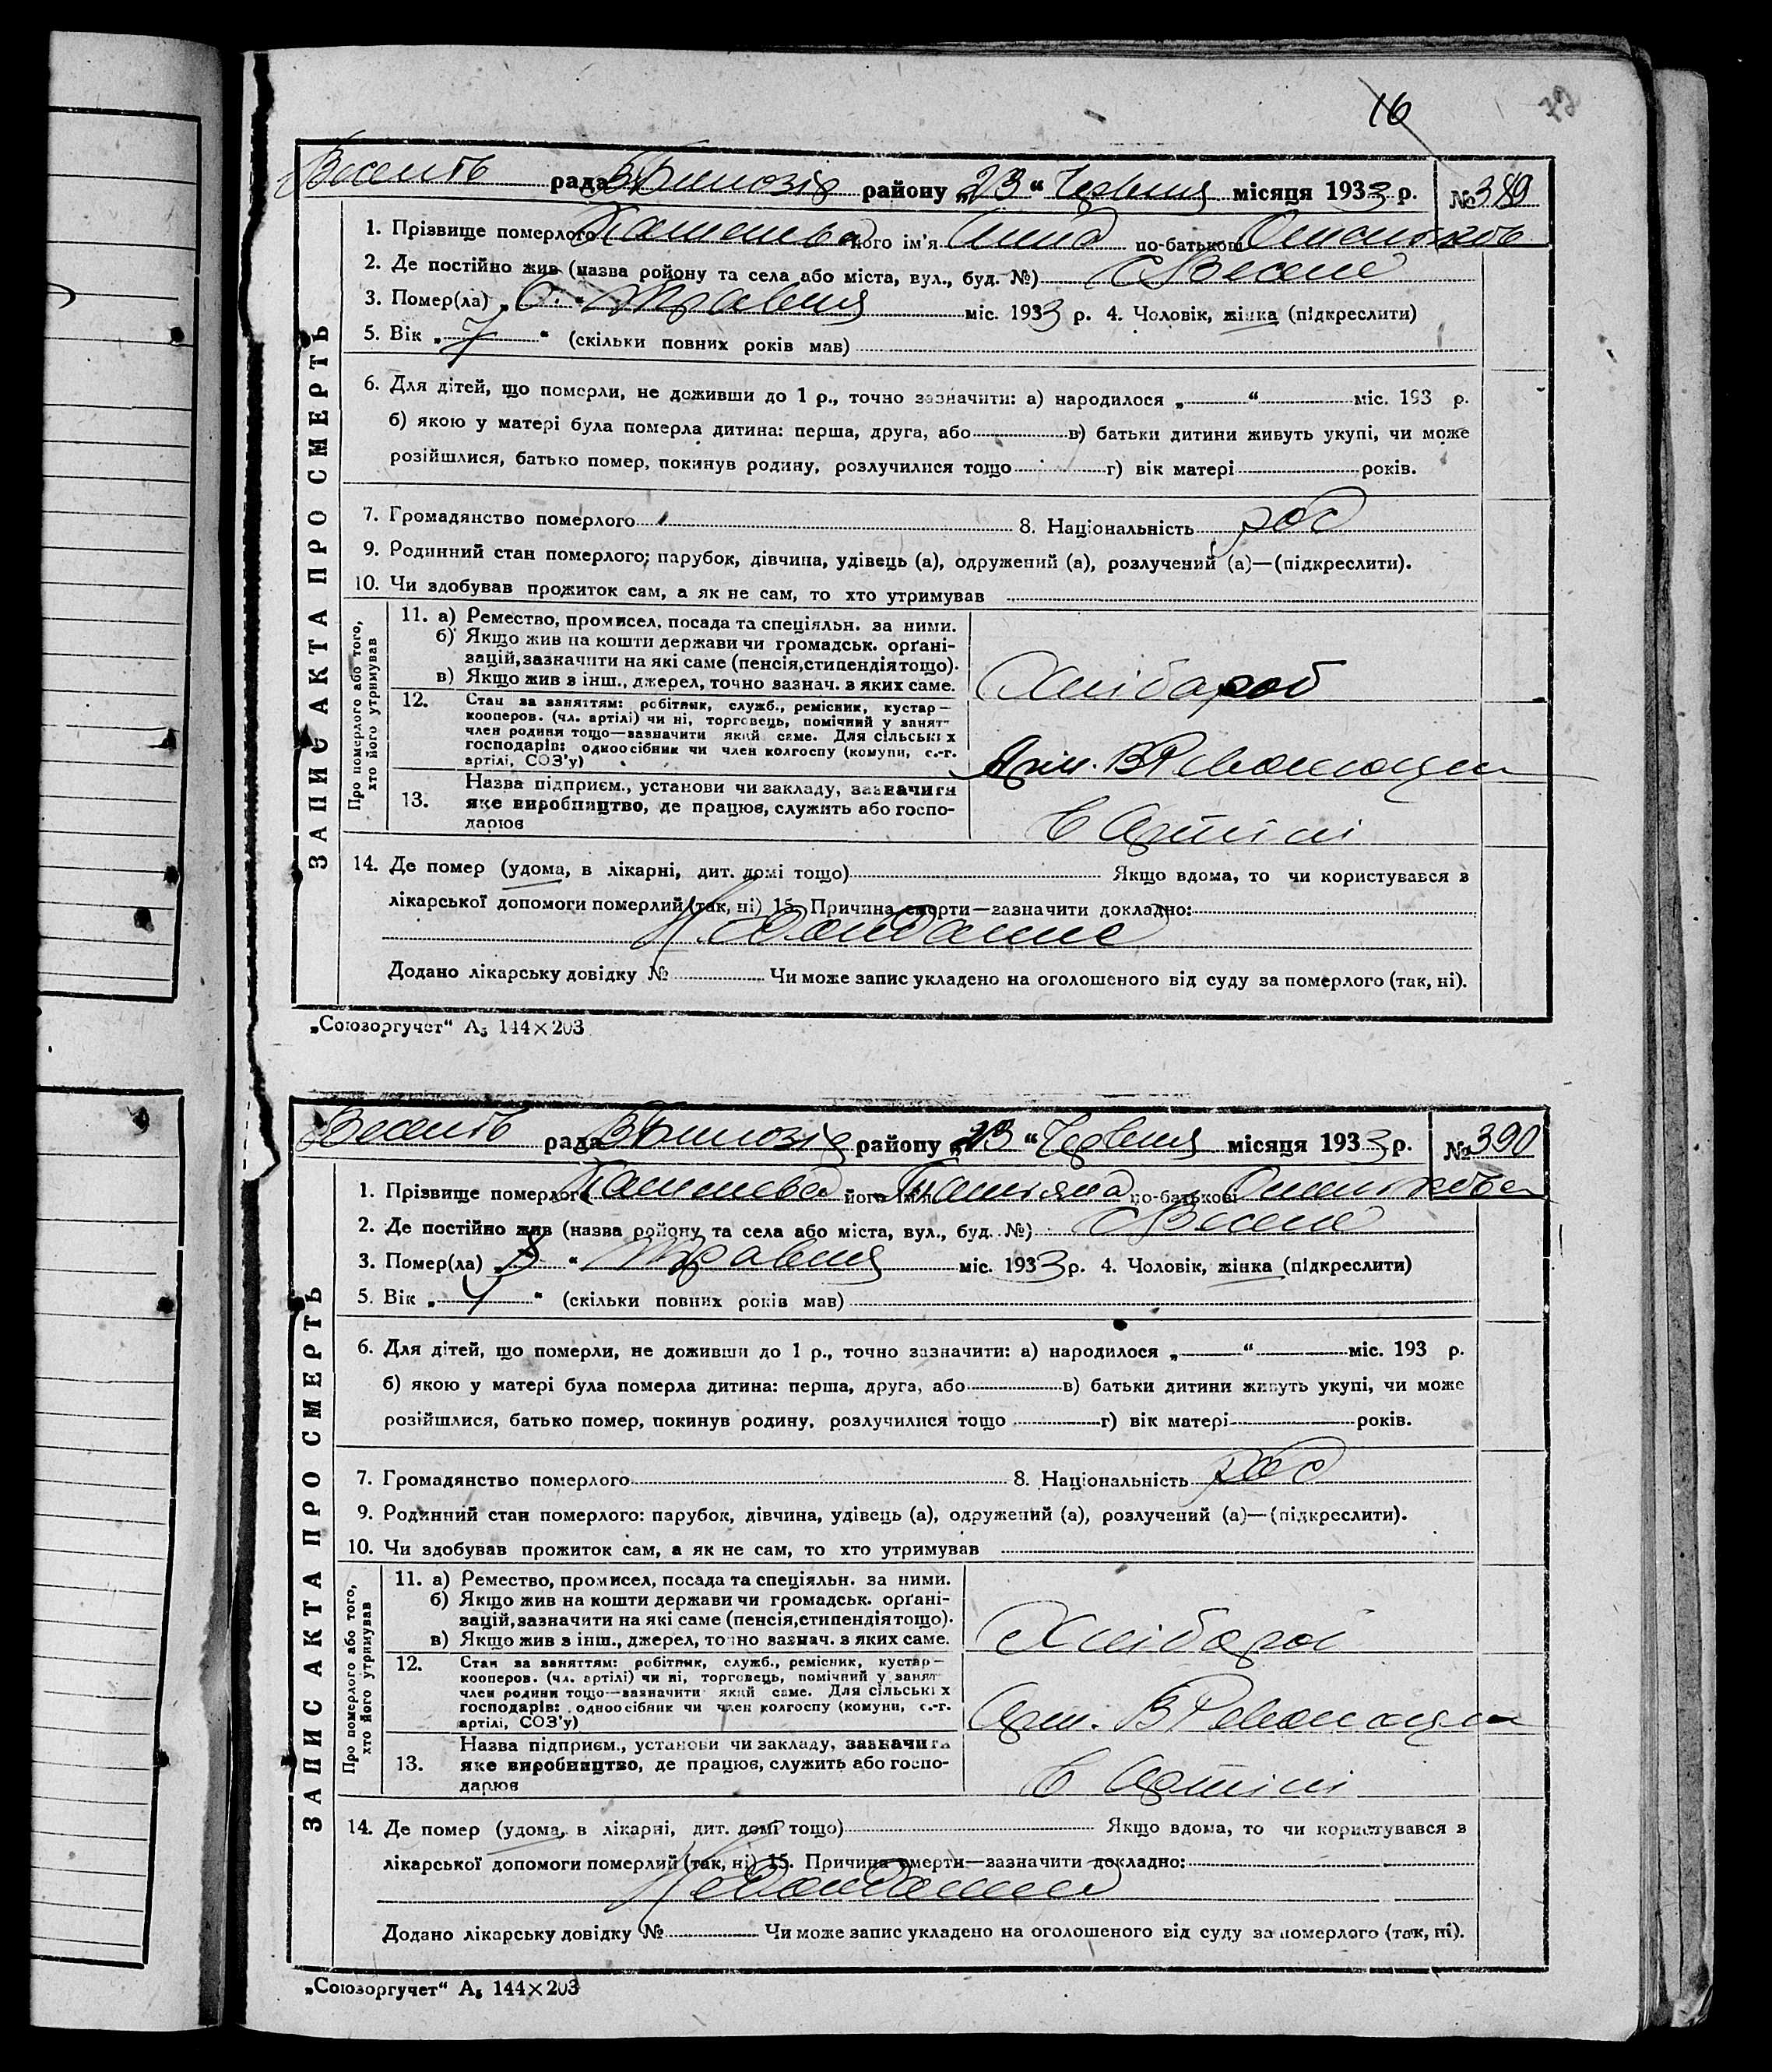 16
рада района „23“ Червня місяця 1933 р. № 389
1. Прізвище померлого його ім'я Анна по-батькові
2. Де постійно жив (назва району та села або міста, вул., буд. №) с Веселе
3. Помер(ла) „6“ Травня міс. 1933 р. 4. Чоловік, жінка (підкреслити)
5. Вік „7“ (скільки повних років мав)
6. Для дітей, що померли, не доживши до 1 р., точно зазначити: а) народилося „ “ міс. 193 р.
б) якою у матері була померла дитина: перша, друга, або в) батьки дитини живуть укупі, чи може
розійшлися, батько помер, покинув родину, розлучилися тощо г) вік матері років.
7. Громадянство померлого 8. Національність рос
9. Родинний стан померлого; парубок, дівчина, удівець (а), одружений (а), розлучений (а)—(підкреслити).
10. Чи здобував прожиток сам, а як не сам, то хто утримував
ЗАПИС АКТА ПРО СМЕРТЬ
Про померлого або того, хто його утримував
11. а) Ремество, промисел, посада та спеціяльн. за ними.
б) Якщо жив на кошти держави чи громадськ. орґані-
зацій, зазначити на які саме (пенсія, стипендія тощо).
в) Якщо жив з інш., джерел, точно зазнач. з яких саме.
Хлібороб
12. Стан за заняттям: робітник, служб., ремісник, кустар—
кооперов. (чл. артілі) чи ні, торговець, помічний у занят-
член родини тощо—зазначити який саме. Для сільських
господарів: одноосібник чи член колгоспу (комуни, с.-г.
артілі, СОЗ'у)
Арт.
13. Назва підприєм., установи чи закладу, зазначити
яке виробництво, де працює, служить або госпо-
дарює
в Артілі
14. Де помер (удома, в лікарні, дит. домі тощо) Якщо вдома, то чи користувався в
лікарської допомоги померлий (так, ні) 15. Причина смерти—зазначити докладно:
Додано лікарську довідку № Чи може запис укладено на оголошеного від суду за померлого (так, ні).
„Союзоргучет“ А₅ 144×203
рада району „23“ Червня місяця 1933 р. № 390
1. Прізвище померлого його ім'я по-батькові
2. Де постійно жив (назва району та села або міста, вул., буд. №) с Веселе
3. Помер(ла) „8“ Травня міс. 1933 р. 4. Чоловік, жінка (підкреслити)
5. Вік „ “ (скільки повних років мав)
6. Для дітей, що померли, не доживши до 1 р., точно зазначити: а) народилося „ “ міс. 193 р.
б) якою у матері була померла дитина: перша, друга, або в) батьки дитини живуть укупі, чи може
розійшлися, батько помер, покинув родину, розлучилися тощо г) вік матері років.
7. Громадянство померлого 8. Національність рос
9. Родинний стан померлого: парубок, дівчина, удівець (а), одружений (а), розлучений (а)—(підкреслити).
10. Чи здобував прожиток сам, а як не сам, то хто утримував
ЗАПИС АКТА ПРО СМЕРТЬ
Про померлого або того, хто його утримував
11. а) Ремество, промисел, посада та спеціяльн. за ними.
б) Якщо жив на кошти держави чи громадськ. орґані-
зацій, зазначити на які саме (пенсія, стипендія тощо).
в) Якщо жив з інш., джерел, точно зазнач. з яких саме.
12. Стан за заняттям: робітник, служб., ремісник, кустар—
кооперов. (чл. артілі) чи ні, торговець, помічний у занят
член родини тощо—зазначити який саме. Для сільських
господарів: одноосібник чи член колгоспу (комуни, с.-г.
артілі, СОЗ'у)
Арт.
13. Назва підприєм., установи чи закладу, зазначити
яке виробництво, де працює, служить або госпо-
дарює
в Артілі
14. Де помер (удома, в лікарні, дит. домі тощо) Якщо вдома, то чи користувався в
лікарської допомоги померлий (так, ні) 15. Причина смерти—зазначити докладно:
Додано лікарську довідку № Чи може запис укладено на оголошеного від суду за померлого (так, ні).
„Союзоргучет“ А₅ 144×203